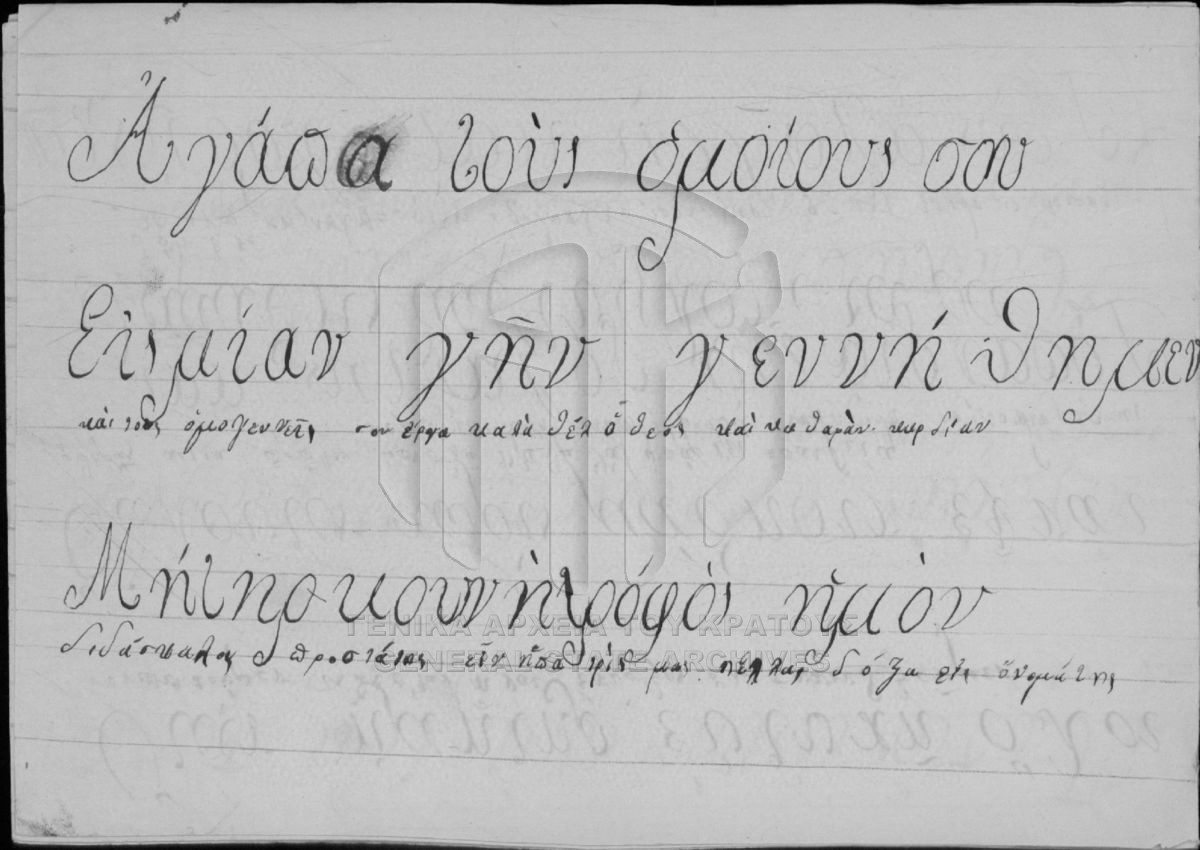 Ἀγάπα τοὺς ὁμοίους σου
Εἰς μίαν γῆν γὲννήθημεν
καὶ τοὺς ὁμογεννεῖς σου ἔργα καλὰ θέλ ὁ θεος καὶ καθαρὰν καρδίαν
Μήτηρ κοινὴ τρόφὸς ἡμὸν
διδάσκαλος προστάτας εἶν ἡ πατρὶς μας δόξα εἰς ὄνομά της
ΓΕΝΙΚΑ ΑΡΧΕΙΑ ΤΟΥ ΚΡΑΤΟΥΣ
GENERAL STATE ARCHIVES